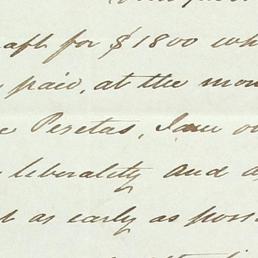 aft for $1800 wh
paid, at the mon
Pesetas, I am ou
liberality and a
t as early as poss